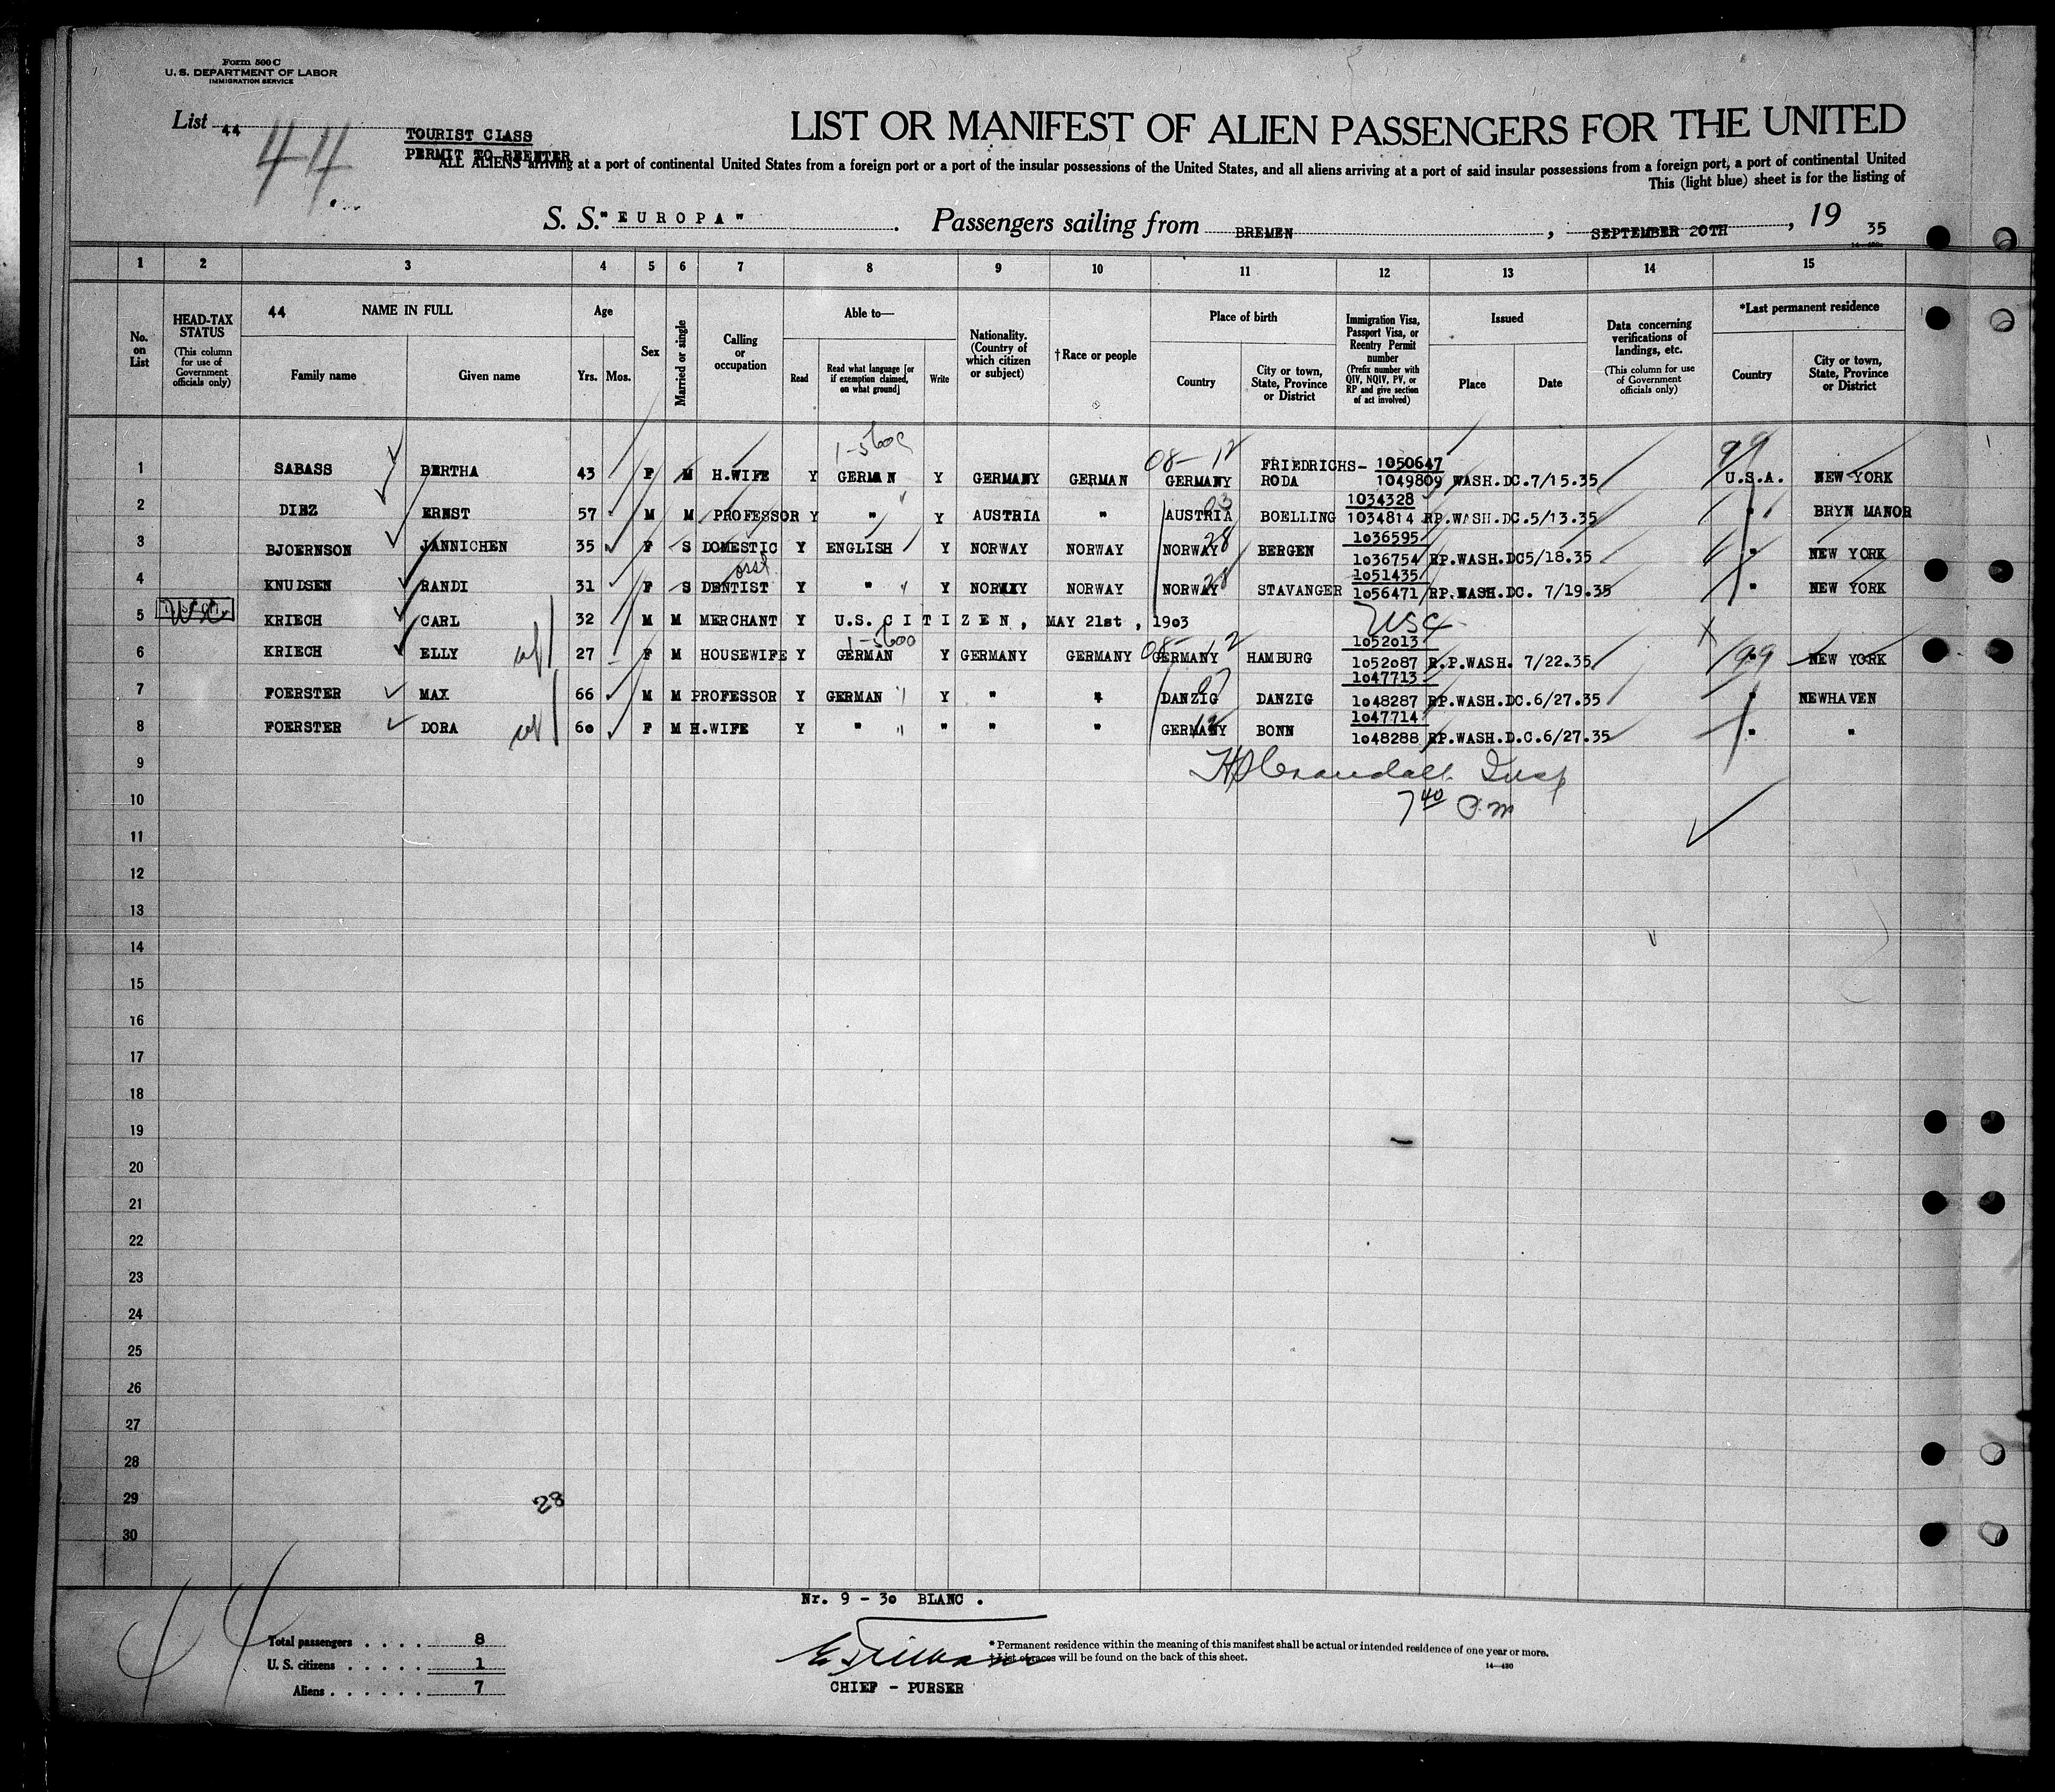 Form 500 C
U. S. DEPARTMENT OF LABOR
IMMIGRATION SERVICE
List 44
44
TOURIST CLASS
PERMIT TO REENTER
LIST OR MANIFEST OF ALIEN PASSENGERS FOR THE UNITED
ALL ALIENS arriving at a port of continental United States from a foreign port or a port of the insular possessions of the United States, and all aliens arriving at a port of said insular possessions from a foreign port, a port of continental United
This (light blue) sheet is for the listing of
S. S. "EUROPA" Passengers sailing from BREMEN, SEPTEMBER 20TH, 19 35
1 2 3 4 5 6 7 8 9 10 11 12 13 14 15
No. on List
HEAD-TAX STATUS
(This column for use of Government officials only)
44 NAME IN FULL
Family name Given name
Age
Yrs. Mos.
Sex
Married or single
Calling or occupation
Able to—
Read
Read what language [or if exemption claimed, on what ground]
Write
Nationality. (Country of which citizen or subject)
†Race or people
Place of birth
Country
City or town, State, Province or District
Immigration Visa, Passport Visa, or Reentry Permit number
(Prefix number with QIV, NQIV, PV, or RP and give section of act involved)
Issued
Place Date
Data concerning verifications of landings, etc.
(This column for use of Government officials only)
*Last permanent residence
Country
City or town, State, Province or District
1-5600 08-12 99
1 SABASS BERTHA 43 F M H.WIFE Y GERMAN Y GERMANY GERMAN GERMANY FRIEDRICHS-RODA 1050647 1049809 WASH.DC.7/15.35 U.S.A. NEW YORK
2 DIEZ ERNST 57 M M PROFESSOR Y " Y AUSTRIA " AUSTRIA 03 BOELLING 1034328 1034814 RP.WASH.DC.5/13.35 " BRYN MANOR
3 BJOERNSON JANNICHEN 35 F S DOMESTIC Y ENGLISH Y NORWAY NORWAY NORWAY 28 BERGEN 1036595 1036754 RP.WASH.DC5/18.35 " NEW YORK
asst
4 KNUDSEN RANDI 31 F S DENTIST Y " Y NORWAY NORWAY NORWAY 28 STAVANGER 1051435 1056471 RP.WASH.DC. 7/19.35 " NEW YORK
5 KRIECH CARL 32 M M MERCHANT Y U.S. CITIZEN, MAY 21st, 1903 USC
1-5600 08-12
6 KRIECH ELLY 27 F M HOUSEWIFE Y GERMAN Y GERMANY GERMANY GERMANY HAMBURG 1052013 1052087 R.P.WASH. 7/22.35 " 99 NEW YORK
7 FOERSTER MAX 66 M M PROFESSOR Y GERMAN Y " " DANZIG 07 DANZIG 1047713 1048287 RP.WASH.DC.6/27.35 " NEWHAVEN
8 FOERSTER DORA 60 F M H.WIFE Y " " " " GERMANY 12 BONN 1047714 1048288 RP.WASH.D.C.6/27.35 " "
9
HD Crandall Insp
10
7 40 P.M
11
12
13
14
15
16
17
18
19
20
21
22
23
24
25
26
27
28
29
28
30
Nr. 9 - 30 BLANC .
Total passengers . . . . 8
U. S. citizens . . . . . 1
Aliens . . . . . . 7
* Permanent residence within the meaning of this manifest shall be actual or intended residence of one year or more.
† List of races will be found on the back of this sheet.
14—430
CHIEF - PURSER